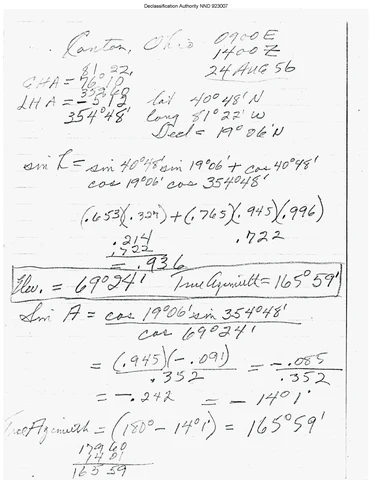 Declassification Authority NND 923007
Canton, Ohio 0900E
1400Z
24 AUG 56
81° 22'
GHA = 76° 10'
LHA = - 5° 12'
354° 48'
lat 40° 48' N
long 81° 22' W
Decl = 19° 06' N
sin L = sin 40° 48' sin 19° 06' + cos 40° 48'
cos 19° 06' cos 354° 48'
(.653)(.327) + (.765)(.945)(.996)
.214 .722
.722
= .936
Elev. = 69° 24' True Azimuth = 165° 59'
Sin A = cos 19° 06' sin 354° 48'
cos 69° 24'
= (.945)(-.091) = -.085
.352 .352
= -.242 = - 14° 1'
True Azimuth = (180° - 14° 1') = 165° 59'
179 60
14 01
165 59